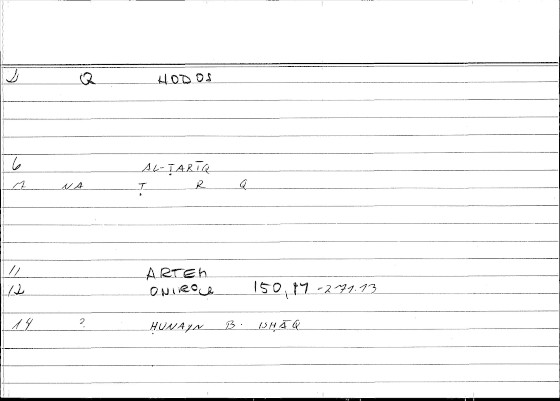 D Q HODOS
6 AL-ṬARĪQ
M NA Ṭ R Q
11 ARTEM
12 ONIROCR 150,17 - 271.13
14 ? ḤUNAYN B. ISḤĀQ